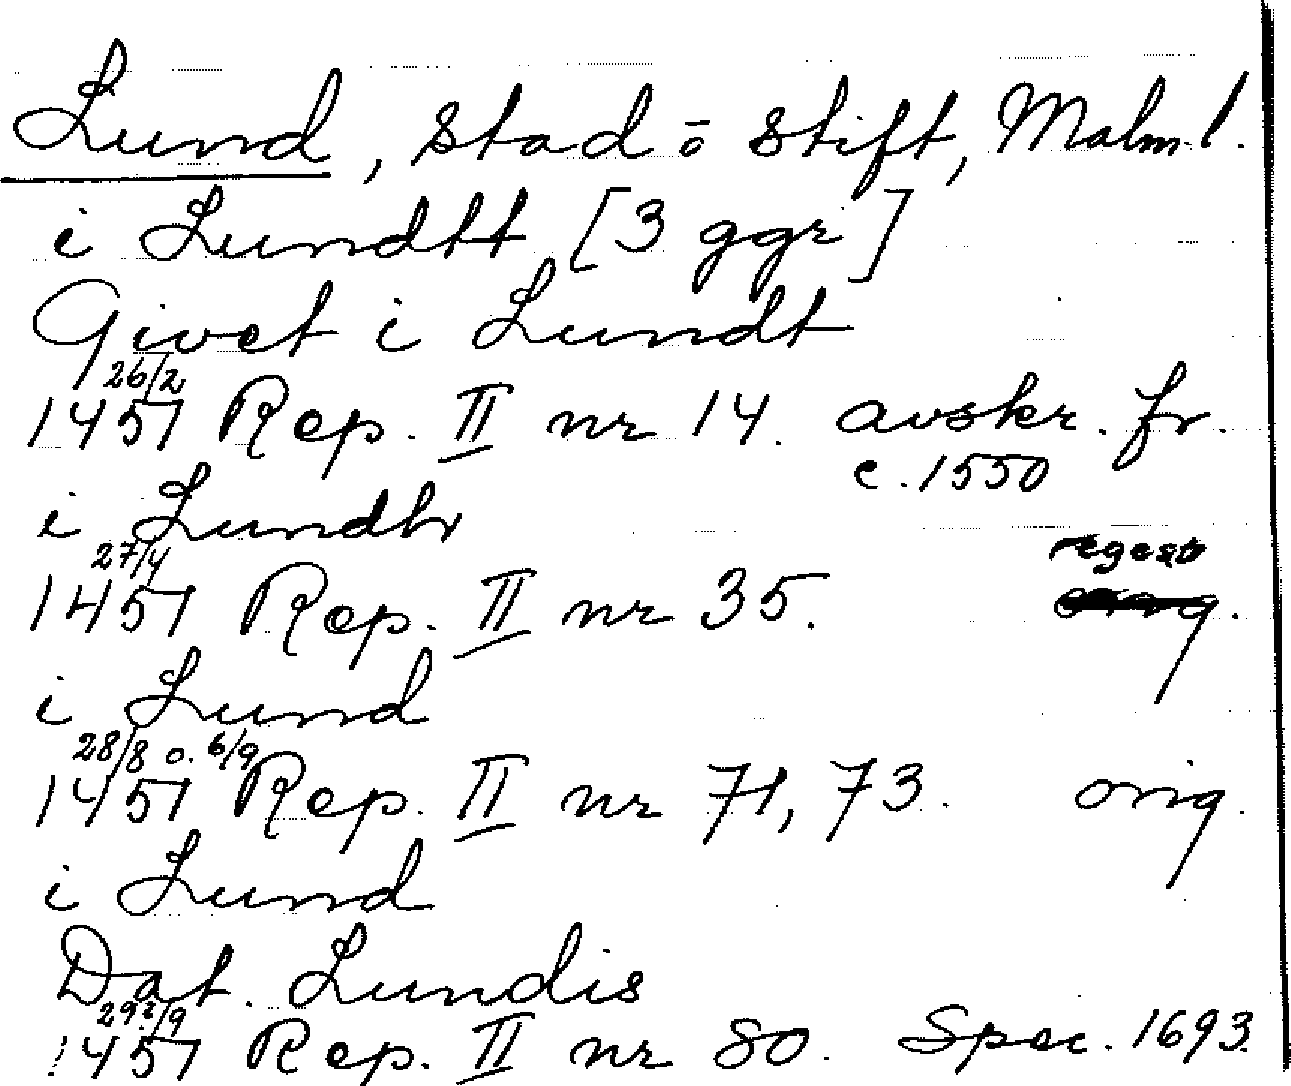 Lund, stad ō stift, Malm. l.
i Lundtt [3 ggr]
Givet i Lundt
26/2
1457 Rep. II nr 14. avskr. fr.
c. 1550
i Lundh
27/4 regest
1457 Rep. II nr 35.
i Lund
28/8 o. 6/9
1457 Rep. II nr 71, 73. orig.
i Lund
Dat. Lundis
29?/9
1457 Rep. II nr 80. Spec. 1693.